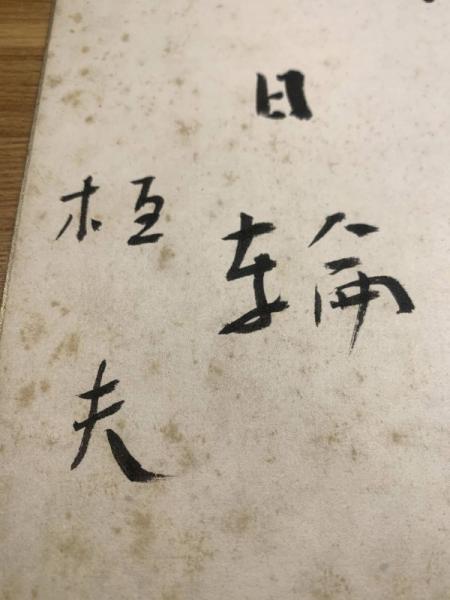 日輪
桓夫